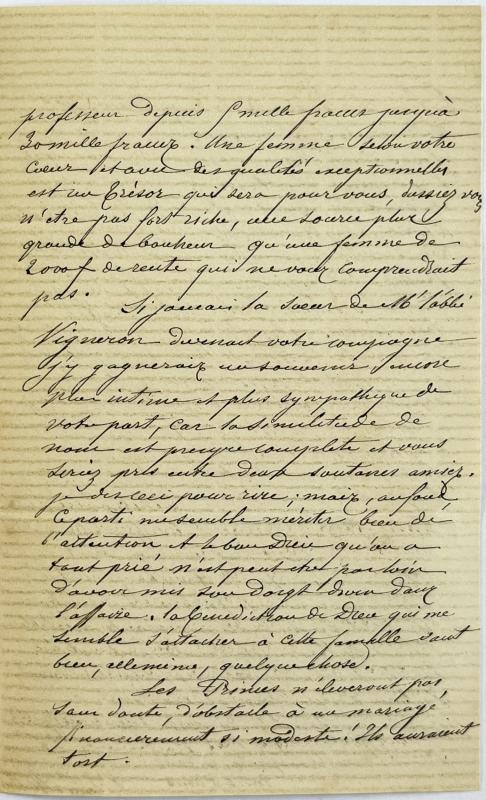 professeur depuis 5 mille francs jusqu'à
20 mille francs. Une femme selon votre
cœur et avec des qualités exceptionnelles
est un trésor qui sera pour vous, dussiez vous
n'être pas fort riche, une source plus
grande de bonheur qu'une femme de
2000f de rente qui ne vous comprendrait
pas.
Si jamais la sœur de Mr l'abbé
Vigneron devenait votre compagne
j'y gagnerais un souvenir encore
plus intime et plus sympathique de
votre part, car la similitude de
nom est presque complète et vous
seriez pris entre deux soutanes amies.
je dis ceci pour rire; mais, au fond
ce parti me semble mériter bien de
l'attention et le bon Dieu qu'on a
tant prié n'est peut être pas loin
d'avoir mis son doigt divin dans
l'affaire. la bénédiction de Dieu qui me
semble s'attacher à cette famille vaut
bien, elle même, quelque chose.
Les Primes n'élèveront pas,
sans doute, d'obstacle à un mariage
financièrement si modeste! Ils auraient
tort.